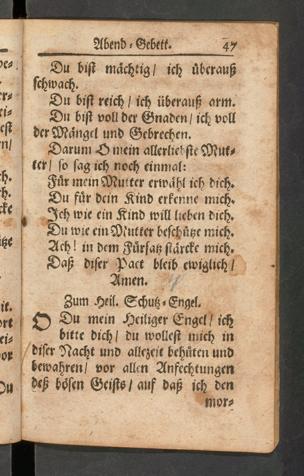 Abend-Gebett. 47
Du bist mächtig / ich überauß
schwach.
Du bist reich / ich überauß arm.
Du bist voll der Gnaden / ich voll
der Mängel und Gebrechen.
Darum O mein allerliebste Mut-
ter / so sag ich noch einmal:
Für mein Mutter erwähl ich dich.
Du für dein Kind erkenne mich.
Ich wie ein Kind will lieben dich.
Du wie ein Mutter beschütze mich.
Ach! in dem Fürsatz stärcke mich.
Daß diser Pact bleib ewiglich /
Amen.
Zum Heil. Schutz-Engel.
O Du mein Heiliger Engel / ich
bitte dich / du wollest mich in
diser Nacht und allezeit behüten und
bewahren / vor allen Anfechtungen
deß bösen Geists / auf daß ich den
mor-